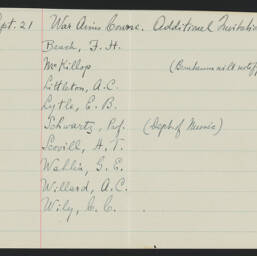 Sept. 21 War Aims Course. Additional Invitation
Beach, F. H.
McKillop (Camhannus will notify
Littleton, A. C.
Lytle, E. B.
Schwartz, Prof. (Dept of Music)
Scovill, H. T.
Wahlin, G. E.
Willard, A. C.
Wily, C. C.